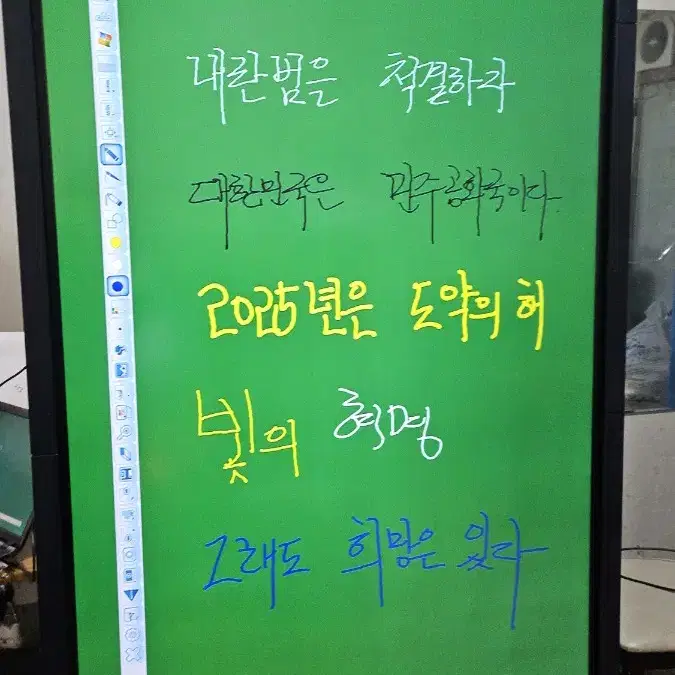 내란범은 척결하라
대한민국은 민주공화국이다.
2025년은 도약의 허
빛의 혁명
그래도 희망은 있다